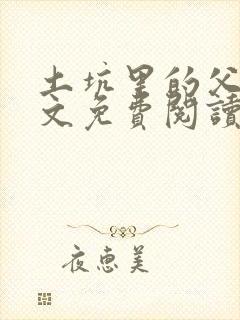 土坑里的父
文免費閱讀
夜惠美